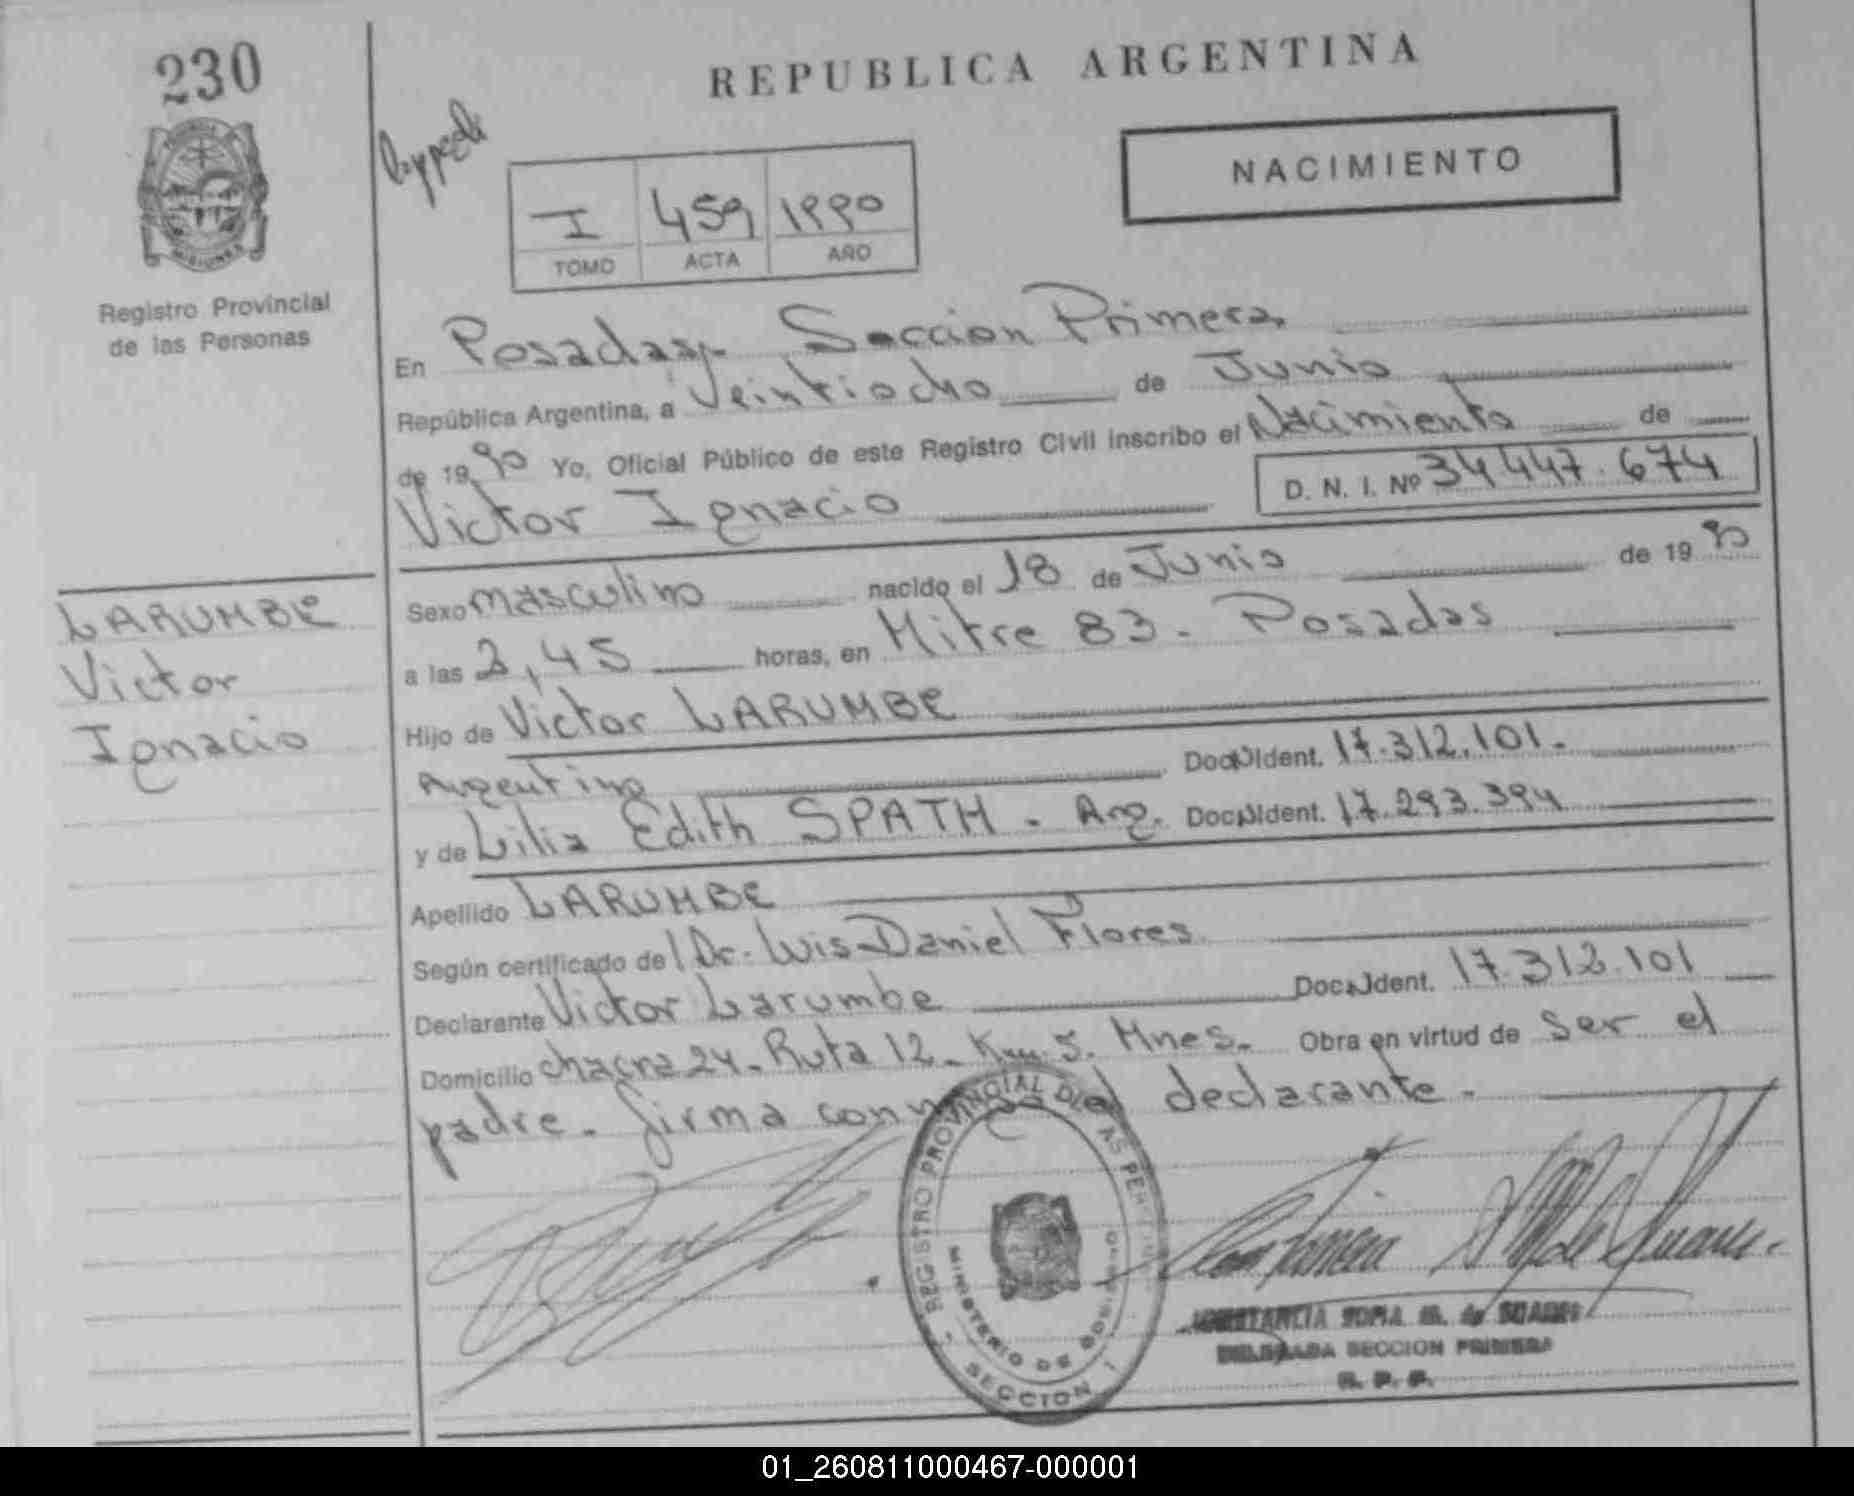 230
REPUBLICA ARGENTINA
NACIMIENTO
I 459 1990
TOMO ACTA AÑO
MISIONES
Registro Provincial
de las Personas
En Posadas,- Seccion Primera
República Argentina, a Veintiocho de Junio
de 1990 Yo, Oficial Público de este Registro Civil inscribo el Nacimiento de
Victor Ignacio D. N. I. Nº 34 447.674
LARUMBE
Victor
Ignacio
Sexo masculino nacido el 18 de Junio de 1990
a las 2,45 horas, en Mitre 83 - Posadas
Hijo de Victor LARUMBE
Argentino Doc. Ident. 17.312.101.-
y de Lilia Edith SPATH - Arg. Doc. Ident. 17.293.394
Apellido LARUMBE
Según certificado del Dr. Luis Daniel Flores
Declarante Victor Larumbe Doc. Ident. 17.312.101
Domicilio chacra 24 - Ruta 12 - Km. 5. Mnes.- Obra en virtud de ser el
padre - firma el declarante.-
REGISTRO PROVINCIAL DE LAS
MINISTERIO DE GOBIERNO
SECCION 1
SOFIA M. de SUAREZ
DELEGADA SECCION PRIMERA
R. P. P.
01_260811000467-000001